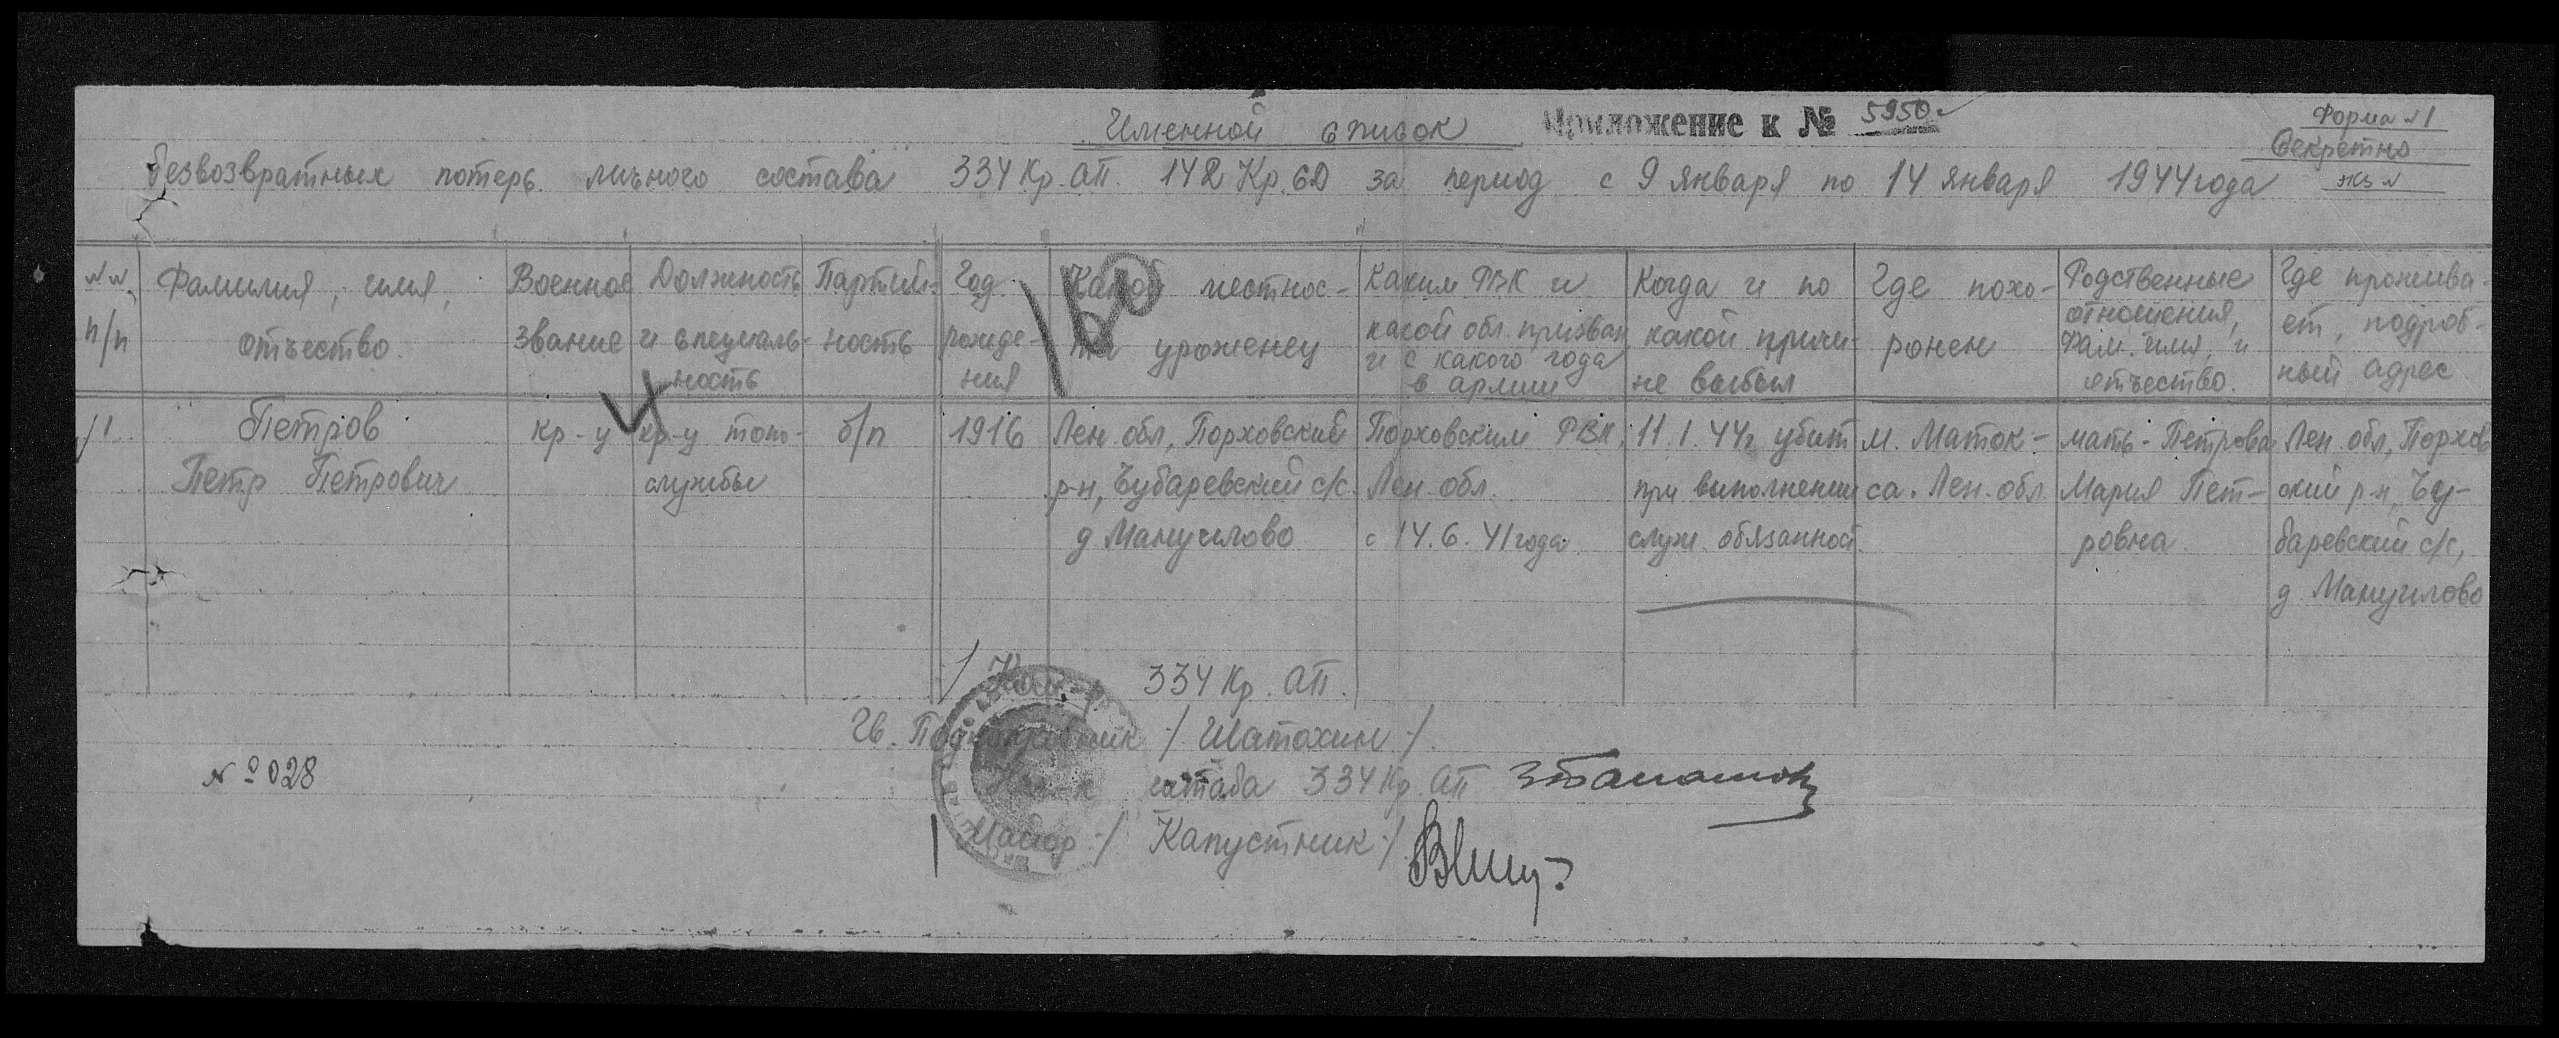 Приложение к № 5950с
Форма №1
Секретно
экз №
Именной список
безвозвратных потерь личного состава 334 Кр. АП. 142 Кр. СД за период с 9 января по 14 января 1944 года
№№ п/п
Фамилия, имя, отчество.
Военное звание
Должность и специаль-
ность
Партий-
ность
Год рожде-
ния
Какой местнос-
ти уроженец
Каким РВК и
какой обл. призван
и с какого года
в армии
Когда и по
какой причи-
не выбыл
Где похо-
ронен
Родственные
отношения,
Фам. имя, и
отчество.
Где прожива-
ет, подроб-
ный адрес
1
Петров
Петр Петрович
кр-ц
кр-ц топо-
службы
б/п
1916
Лен. обл, Порховский
р-н, Бубаревский с/с.
д Мануилово
Порховским РВК,
Лен. обл.
с 14.6.41 года
11.1.44г убит
при выполнении
служ. обязанност.
м. Маток-
са. Лен. обл
мать - Петрова
Мария Пет-
ровна
Лен. обл, Порхов
ский р-н, Бу-
баревский с/с,
д Мануилово
Ком-р 334 Кр. АП.
Гв. Подполковник /Шатохин/
Нач-к штаба 334 Кр. АП
Майор /Капустник/
№ 028